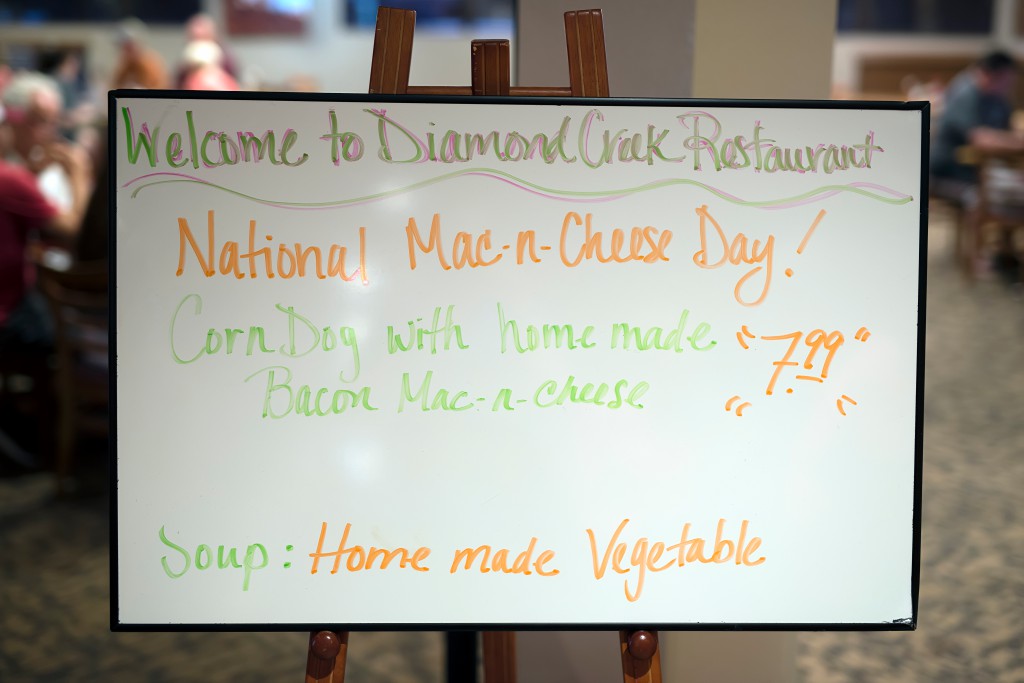 Welcome to Diamond Creek Restaurant
National Mac-n-Cheese Day!
Corn Dog with home made "7.99"
Bacon Mac-n-cheese
Soup: Home made Vegetable